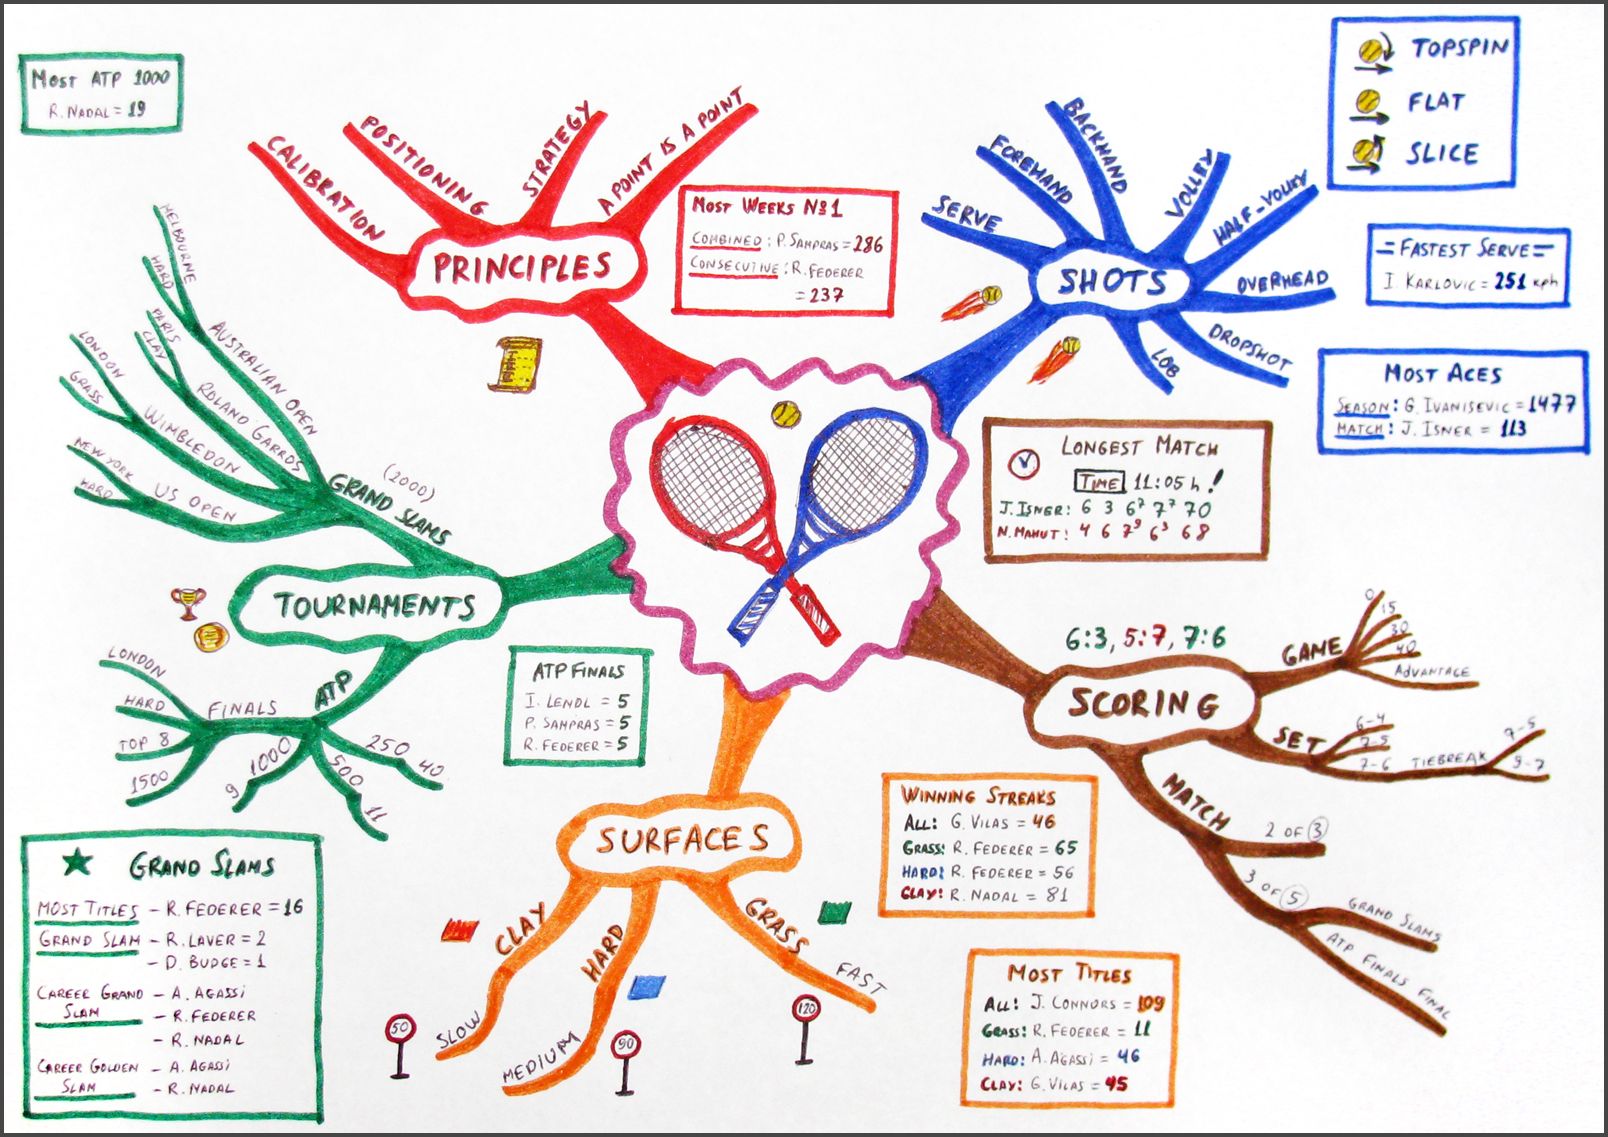 MOST ATP 1000
R. NADAL = 19
CALIBRATION
POSITIONING
STRATEGY
A POINT IS A POINT
PRINCIPLES
MOST WEEKS № 1
COMBINED : P. SAMPRAS = 286
CONSECUTIVE : R. FEDERER
= 237
SERVE
FOREHAND
BACKHAND
VOLLEY
HALF-VOLLEY
OVERHEAD
DROPSHOT
LOB
SHOTS
TOPSPIN
FLAT
SLICE
= FASTEST SERVE =
I. KARLOVIC = 251 kph
MOST ACES
SEASON: G. IVANISEVIC = 1477
MATCH: J. ISNER = 113
LONGEST MATCH
TIME 11:05 h!
J. ISNER: 6 3 6⁷ 7⁷ 70
N. MAHUT: 4 6 7⁹ 6³ 68
MELBOURNE
HARD
AUSTRALIAN OPEN
PARIS
CLAY
ROLAND GARROS
LONDON
GRASS
WIMBLEDON
NEW YORK
HARD
US OPEN
GRAND SLAMS
(2000)
TOURNAMENTS
ATP
FINALS
LONDON
HARD
TOP 8
1500
1000
9
500
11
250
40
ATP FINALS
I. LENDL = 5
P. SAMPRAS = 5
R. FEDERER = 5
6:3, 5:7, 7:6
SCORING
GAME
0
15
30
40
ADVANTAGE
SET
6-4
7-5
7-6
TIEBREAK
7-5
9-7
MATCH
2 OF 3
3 OF 5
GRAND SLAMS
ATP FINALS FINAL
SURFACES
CLAY
SLOW
50
HARD
MEDIUM
90
GRASS
FAST
120
WINNING STREAKS
ALL: G. VILAS = 46
GRASS: R. FEDERER = 65
HARD: R. FEDERER = 56
CLAY: R. NADAL = 81
MOST TITLES
ALL: J. CONNORS = 109
GRASS: R. FEDERER = 11
HARD: A. AGASSI = 46
CLAY: G. VILAS = 45
GRAND SLAMS
MOST TITLES - R. FEDERER = 16
GRAND SLAM - R. LAVER = 2
- D. BUDGE = 1
CAREER GRAND SLAM - A. AGASSI
- R. FEDERER
- R. NADAL
CAREER GOLDEN SLAM - A. AGASSI
- R. NADAL